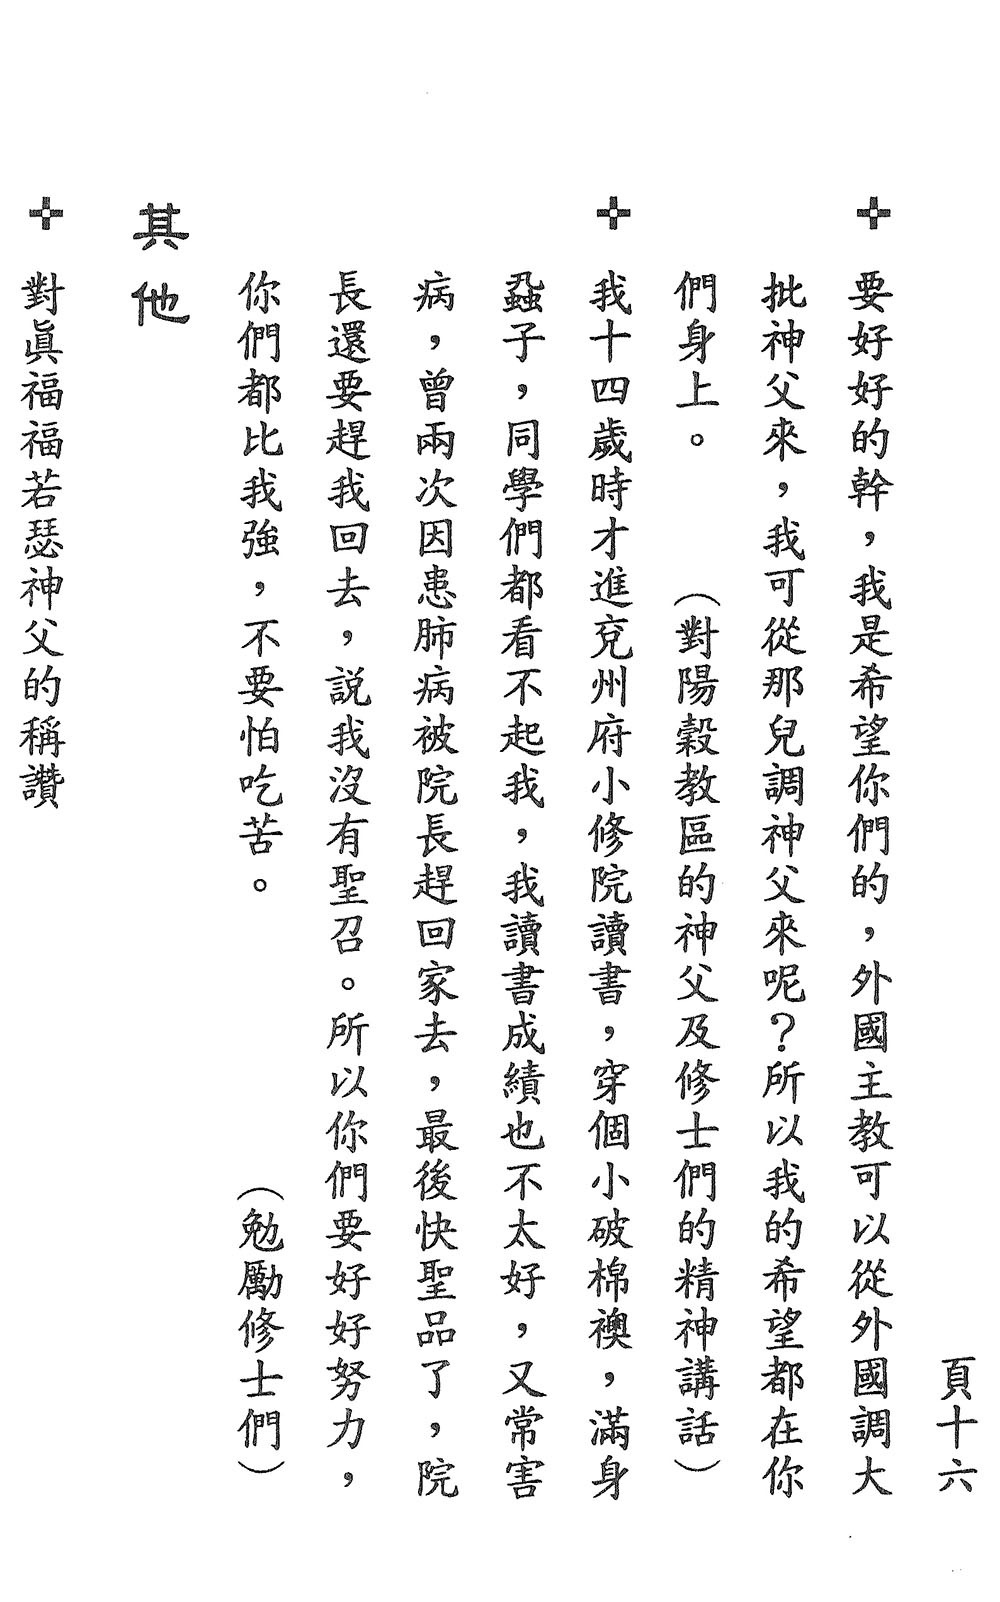 頁十六
✣ 要好好的幹，我是希望你們的，外國主教可以從外國調大
批神父來，我可從那兒調神父來呢？所以我的希望都在你
們身上。（對陽穀教區的神父及修士們的精神講話）
✣ 我十四歲時才進兗州府小修院讀書，穿個小破棉襖，滿身
蝨子，同學們都看不起我，我讀書成績也不太好，又常害
病，曾兩次因患肺病被院長趕回家去，最後快聖品了，院
長還要趕我回去，說我沒有聖召。所以你們要好好努力，
你們都比我強，不要怕吃苦。（勉勵修士們）
其他
✣ 對眞福福若瑟神父的稱讚